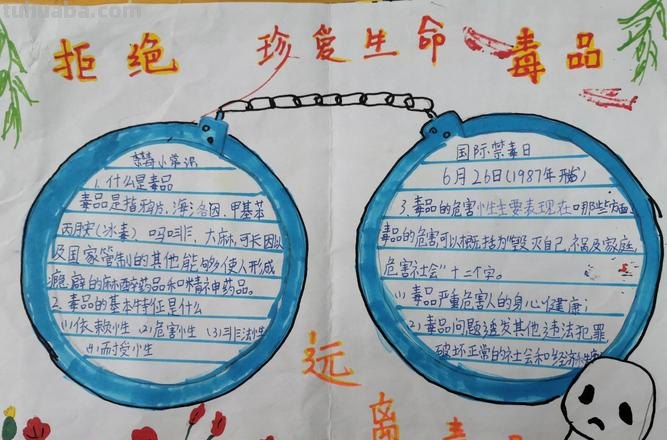 tuhuaba.com
拒绝 珍爱生命 毒品
禁毒小常识
1.什么是毒品
毒品是指鸦片、海洛因、甲基苯
丙胺(冰毒)、吗啡、大麻、可卡因以
及国家管制的其他能够使人形成
瘾癖的麻醉药品和精神药品。
2.毒品的基本特征是什么
(1)依赖性 (2)危害性 (3)非法性
(4)耐受性
国际禁毒日
6月26日(1987年开始)
3.毒品的危害性主要表现在哪些方面
毒品的危害可以概括为"毁灭自己,祸及家庭,
危害社会"十二个字。
(1)毒品严重危害人的身心健康;
(2)毒品问题诱发其他违法犯罪
破坏正常的社会和经济
远
离
毒